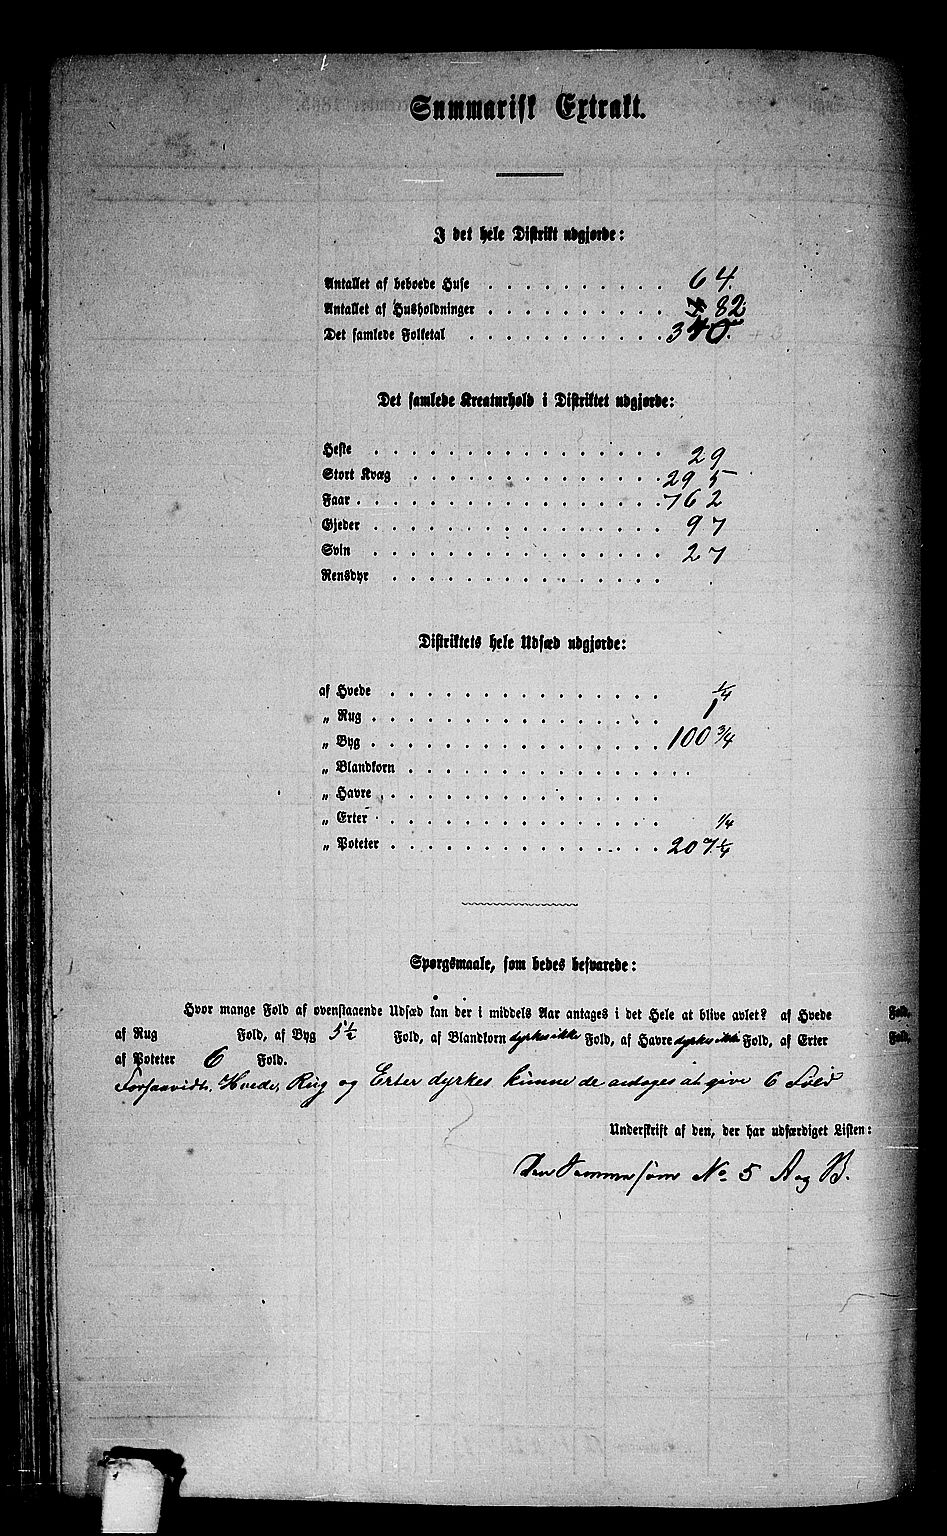 Summarisk Extrakt.
I det hele Distrikt udgjorde:
Antallet af beboede Huse . . . . . . . . . . 64.
Antallet af Husholdninger . . . . . . . . . . 82
Det samlede Folketal . . . . . . . . . . . 340.
Det samlede Kreaturhold i Distriktet udgjorde:
Heste . . . . . . . . . . . . . . . 29
Stort Kvæg . . . . . . . . . . . . . 295
Faar . . . . . . . . . . . . . . . . 762
Gjeder . . . . . . . . . . . . . . . 97
Svin . . . . . . . . . . . . . . . 27
Rensdyr . . . . . . . . . . . . . .
Distriktets hele Udsæd udgjorde:
af Hvede . . . . . . . . . . . . . . ¼
„ Rug . . . . . . . . . . . . . . . 1
„ Byg . . . . . . . . . . . . . . . 100 ¾
„ Blandkorn . . . . . . . . . . . . . .
„ Havre . . . . . . . . . . . . . . .
„ Erter . . . . . . . . . . . . . . . ¼
„ Poteter . . . . . . . . . . . . . . 207 ¼
Spørgsmaale, som bedes besvarede:
Hvor mange Fold af ovenstaaende Udsæd kan der i middels Aar antages i det Hele at blive avlet? af Hvede Fold,
af Rug Fold, af Byg 5½ Fold, af Blandkorn dyrkes ikke Fold, af Havre dyrkes ikke Fold, af Erter Fold,
af Poteter 6 Fold.
Forsaavidt Hvede, Rug og Erter dyrkes kunne de antages at give 6 Fold
Underskrift af den, der har udfærdiget Listen:
No. 5 A og B.